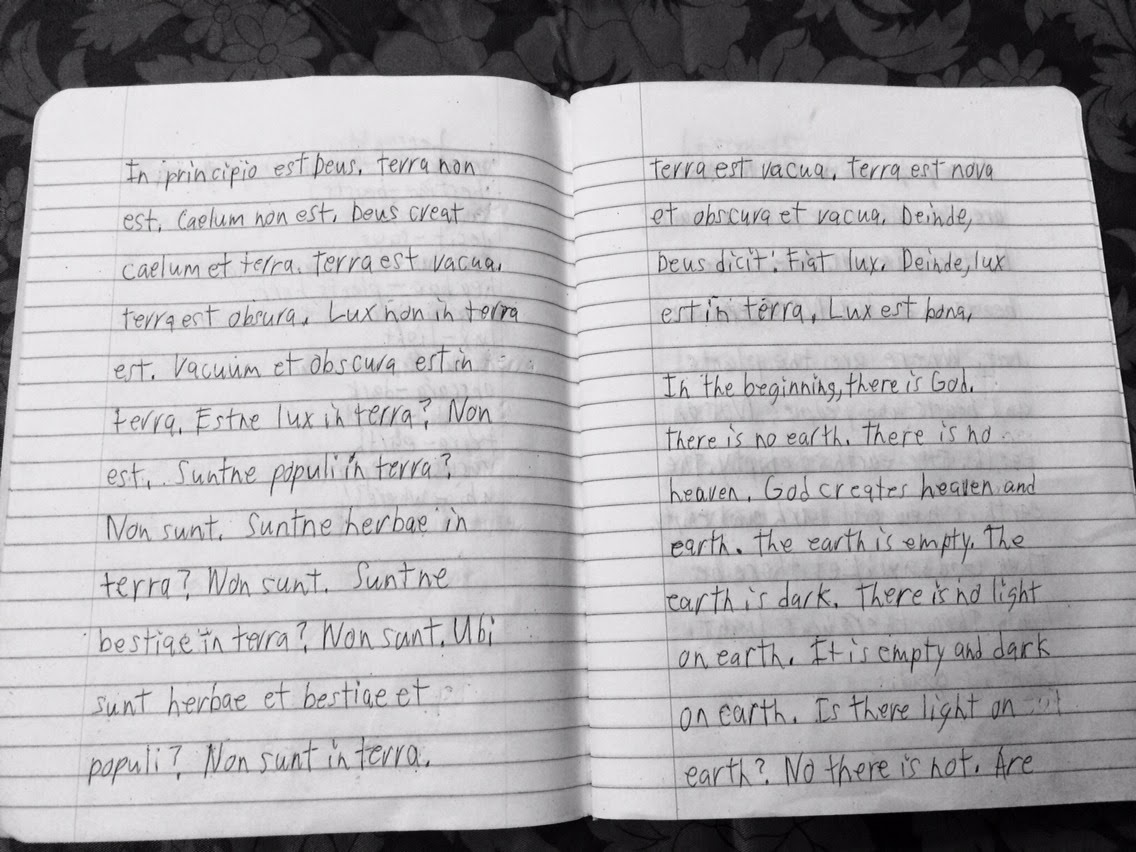 In principio est Deus. terra non
est. Caelum non est. Deus creat
caelum et terra. terra est vacua.
terra est obsura. Lux non in terra
est. Vacuum et obscura est in
terra. Estne lux in terra? Non
est. Suntne populi in terra?
Non sunt. Suntne herbae in
terra? Non sunt. Suntne
bestiae in terra? Non sunt. Ubi
sunt herbae et bestiae et
populi? Non sunt in terra.
terra est vacua. terra est nova
et obscura et vacua. Deinde,
Deus dicit: Fiat lux. Deinde, lux
est in terra. Lux est bona.
In the beginning, there is God.
there is no earth. there is no
heaven. God creates heaven and
earth. the earth is empty. The
earth is dark. there is no light
on earth. It is empty and dark
on earth. Is there light on
earth? No there is not. Are